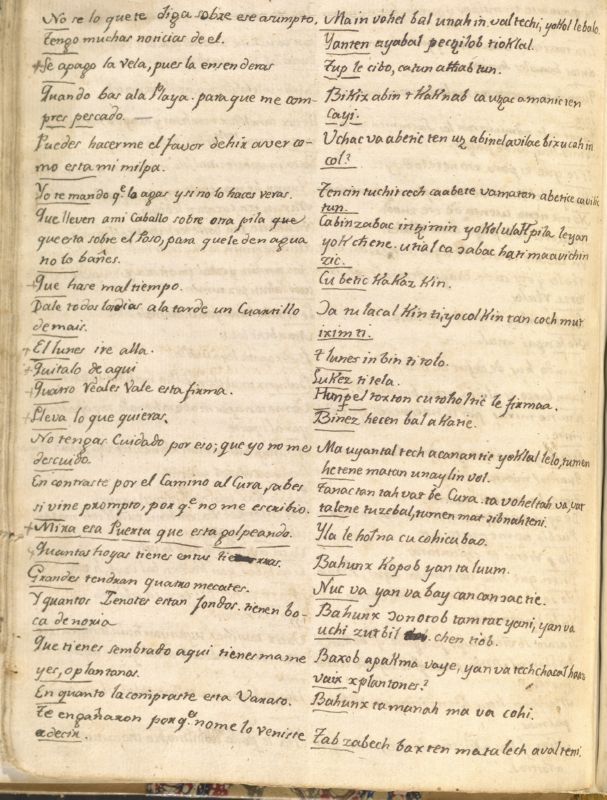 No se lo que te diga sobre ese asumpto.
Tengo muchas noticias de el.
Se apago la vela, pues la ensenderas
Quando bas ala Playa. para que me com-
pres pescado.
Puedes hacerme el favor de hir a ver co-
mo esta mi milpa.
Yo te mando qe. lo agas y si no lo haces veras.
Que lleven ami Caballo sobre otra pila que
que esta sobre el Poso, para que le den agua
no lo bañes.
Que hase mal tiempo.
Dale todos los dias ala tarde un Cuartillo
de mais.
El lunes ire alla.
Quitalo de aqui
Quatro reales vale esta firma.
Lleva lo que quieras.
No tengas Cuidado por eso; que yo no me
descuido.
Encontraste por el Camino al Cura, sabes
si vine prompto, por qe. no me escribio.
Mira esa Puerta que esta golpeando.
Quantas hoyas tienes en tus tierras.
Grandes tendran quatro mecates.
Y quantos Zenotes estan fondos. tienen bo-
ca de noria
Que tienes sembrado aqui tienes mame
yes, o plantanos.
En quanto la compraste esta Varato.
Te engañaron por qe. no me lo veniste
a decir.
Ma in vohel bal unah in valtechi, yokol lebalo.
Yanten uyabal peczilob tioklal.
Tup le cibo, catun athab tun.
Bikix abin t KaKnab ca uzac amanic ten
cayi.
Uchac va abetic ten uz abinel avilae bix ucah in
col?
Tencin tuchic tech ca abete va matan abetice cavilic
tun.
Cabin zabac in tzimin yokol ulak pila le yan
yok chene. utial ca dabac hati maavichin
zic.
Cu betic KaKaz Kin.
Da tu lacal Kin ti, yocol Kin tan coch mut
ixim ti.
t lunes in bin titolo.
Lukez titela.
Hunpel toxton cu toholtic le firmaa.
Binez hecen bal a Katie.
Ma uyantal tech acanantic yoklal lelo, tumen
hetene matan unaylin vol.
Tanactan tah vat be Cura. ta voheltah va, vat
talene tuzebal, tumen mat dibnahteni.
Yla le holna cu cohicubao.
Bahunx Kopob yan ta luum.
Nuc va yan va bay can can dac tie.
Bahunx donotob tamtac yani, yan va
uchi zutbil chen tiob.
Baxob apakma vaye, yan va tech chacal haaz
vaix x plantones?
Bahunx tamanah ma va cohi.
Tabzabech bax ten ma talech avalteni.